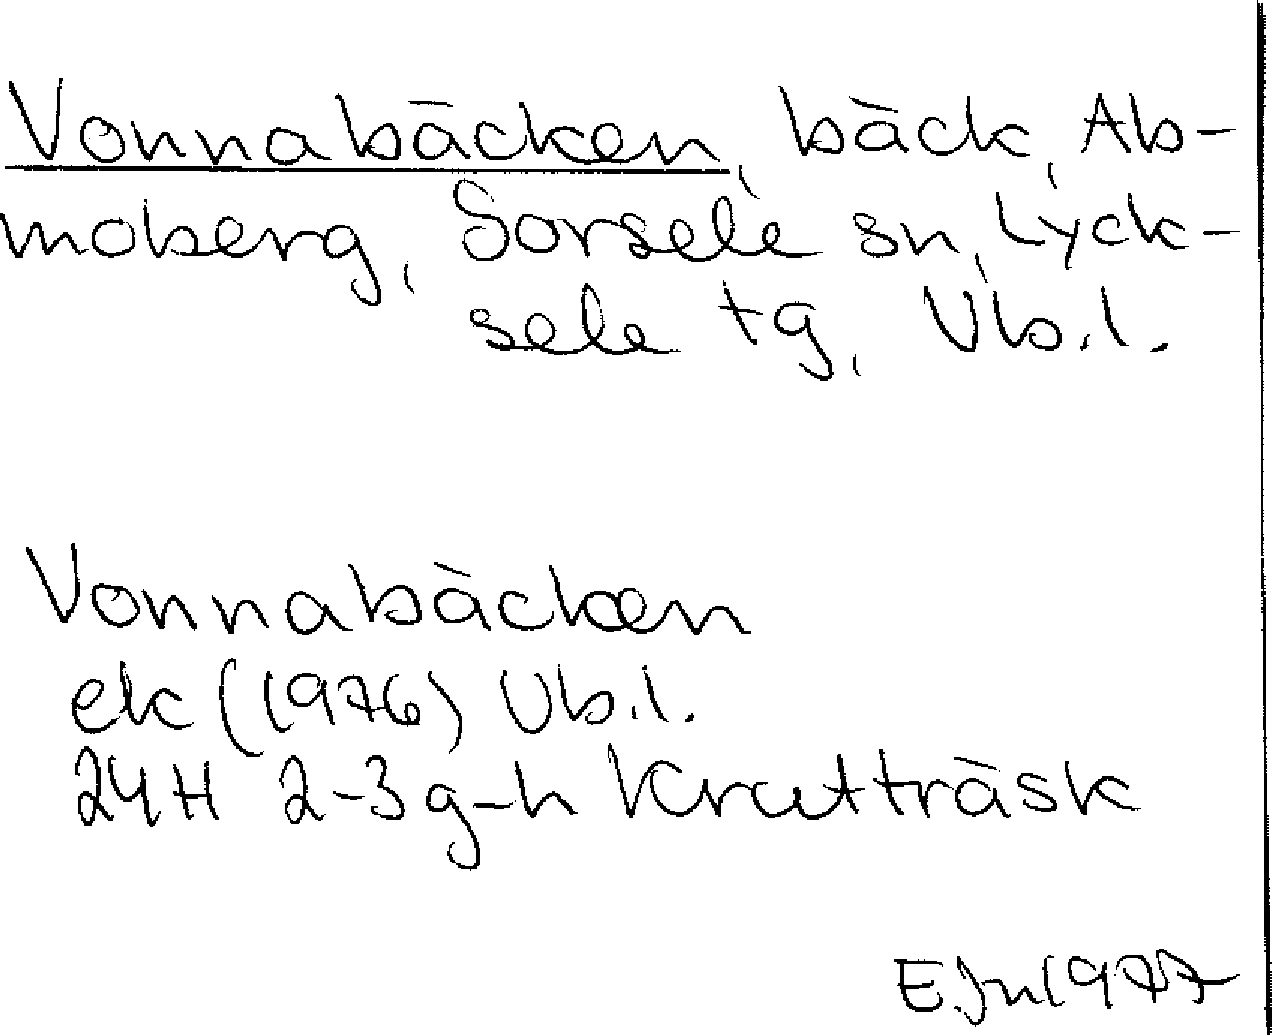 Vonnabäcken, bäck, Ab-
moberg, Sorsele sn, Lyck-
sele tg, Vb.l.
Vonnabäcken
ek (1976) Vb.l.
24H 2-3 g-h Krutträsk
E.Jn 1977